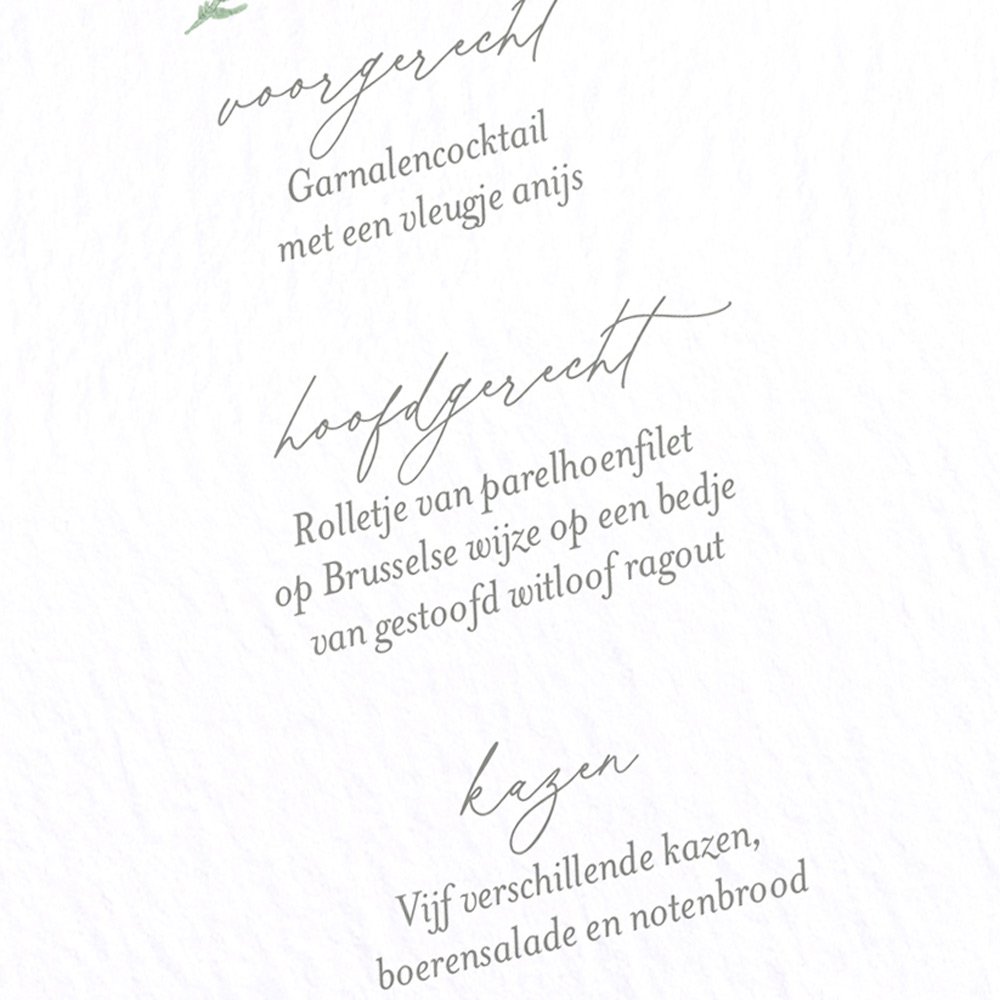 voorgerecht
Garnalencocktail
met een vleugje anijs
hoofdgerecht
Rolletje van parelhoenfilet
op Brusselse wijze op een bedje
van gestoofd witloof ragout
kazen
Vijf verschillende kazen,
boerensalade en notenbrood